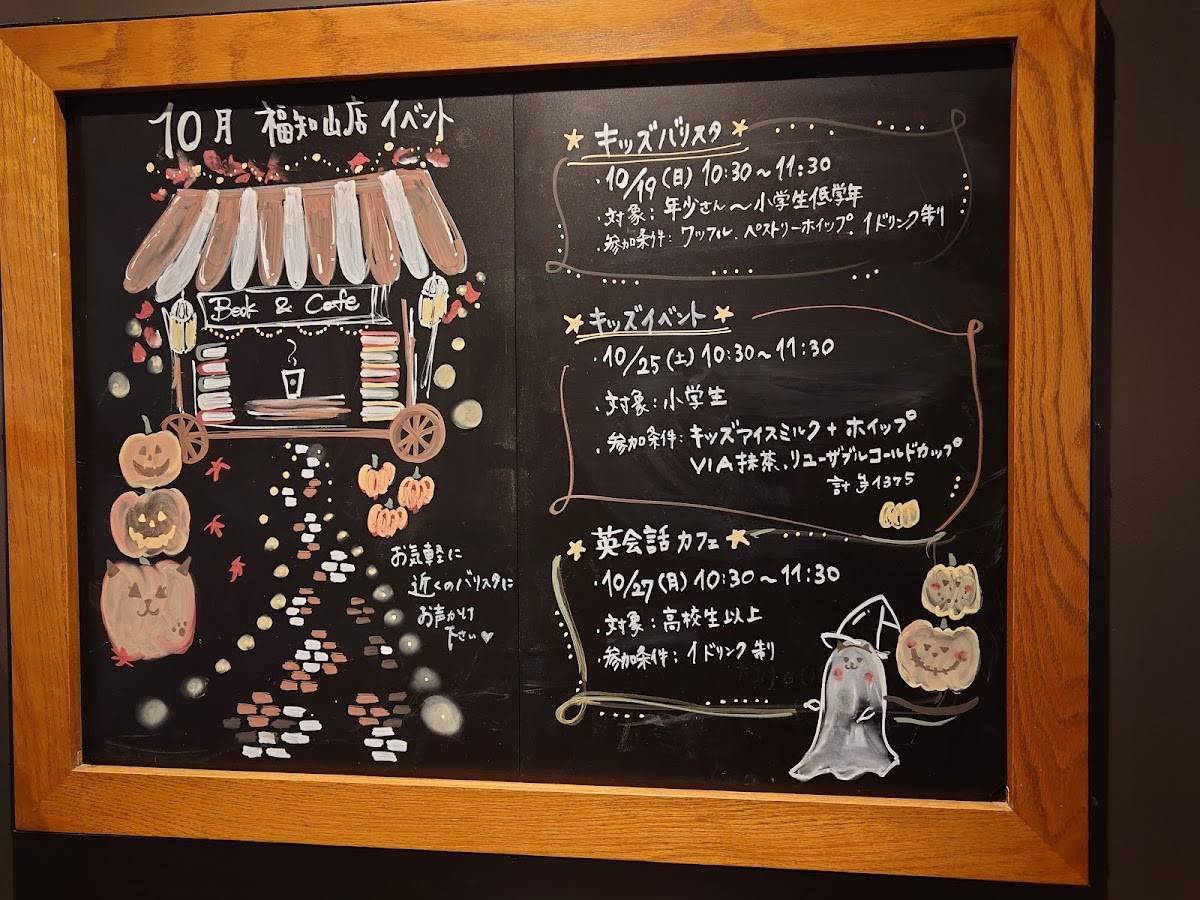 10月 福知山店 イベント
Book & Cafe
お気軽に
近くのバリスタに
お声がけ
下さい♥
キッズバリスタ
・10/19(日) 10:30~11:30
・対象: 年少さん~小学生低学年
・参加条件: ワッフル、ペストリーホイップ、1ドリンク制
キッズイベント
・10/25(土) 10:30~11:30
・対象:小学生
・参加条件: キッズアイスミルク+ホイップ
VIA抹茶、リユーザブルコールドカップ
計 ¥1375
英会話カフェ
・10/27(月) 10:30~11:30
・対象:高校生以上
・参加条件: 1ドリンク制